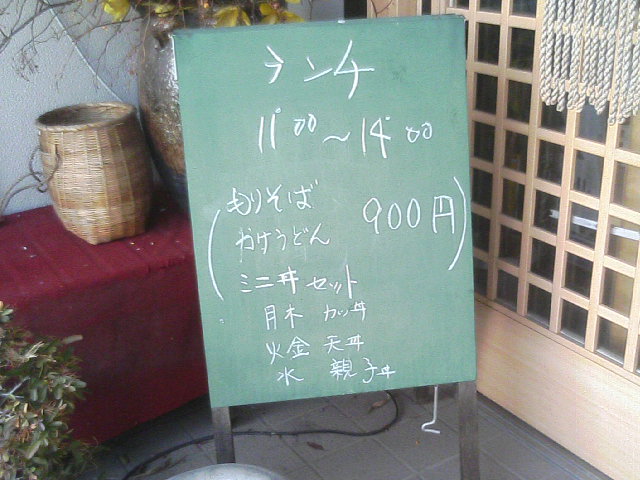 ランチ
11:00～14:00
もりそば
かけうどん
900円
ミニ丼セット
月木 カツ丼
火金 天丼
水 親子丼